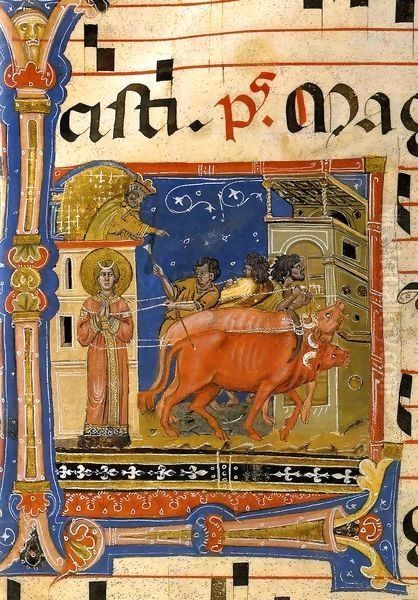 cisti. p̃s. Mag